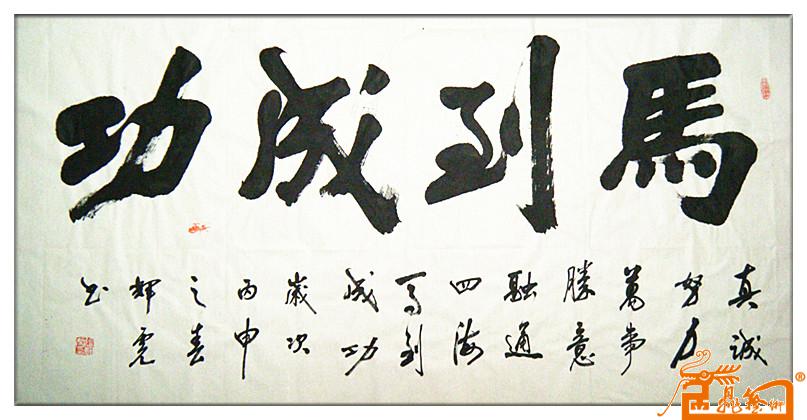 馬到成功
真誠
努力
萬事
勝意
融通
四海
马到
成功
歲次
丙申
之春
輝虎
书